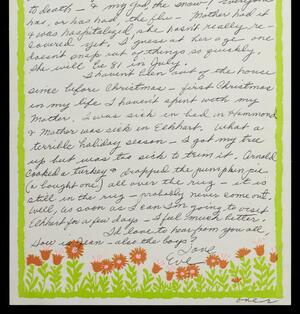 to death - & my God, the snow! Everyone
has, or has had, the flu - Mother had it
& was hospitalized, she hasn't really re-
covered yet, I guess at her age one
doesn't snap out of things so quickly.
She will be 81 in July.
I haven't been out of the house
since before Christmas - first Christmas
in my life I haven't spent with my
Mother. I was sick in bed in Hammond
& Mother was sick in Elkhart. What a
terrible holiday season - I got my tree
up but was too sick to trim it. Arnold
cooked a turkey & dropped the pumpkin pie
(a bought one) all over the rug - it is
still in the rug - probably never come out.
Well, as soon as I can I'm going to visit
Elkhart for a few days - I feel much better.
I'd love to hear from you all,
How is Jean - also the boys?
Love
Eve
over